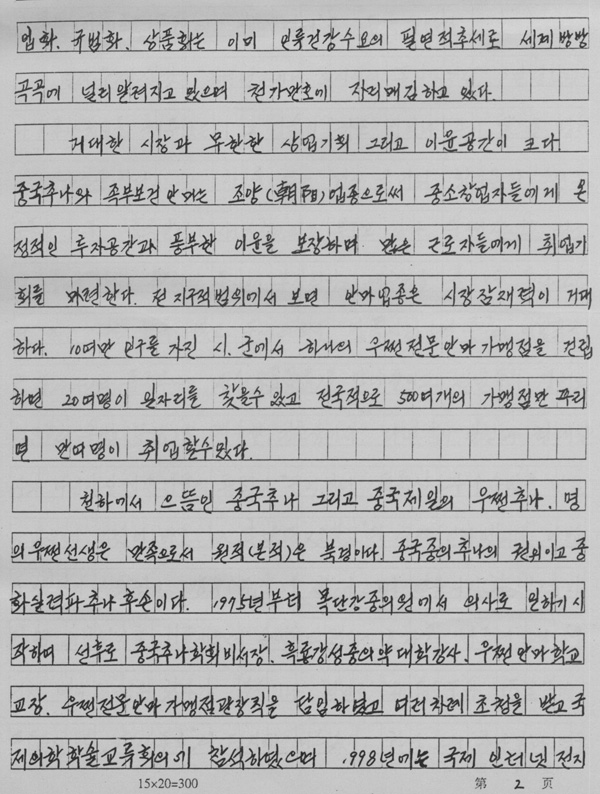 업화. 규범화. 상품화는 이미 인류건강수요의 필연적추세로 세계방방
곡곡에 널리알려지고 있으며 천가만호에 자리매김하고 있다.
거대한 시장과 무한한 상업기회 그리고 이윤공간이 크다.
중국추나와 족부보건안마는 조양(朝阳)업종으로써 중소창업자들에게 온
정적인 투자공간과 풍부한 이윤을 보장하며 많은 근로자들에게 취업기
회를 마련한다. 전지구적범위에서 보면 안마업종은 시장잠재력이 거대
하다. 10여만 인구를 가진 시. 군에서 하나의 우쩐전문안마가맹점을 건립
하면 20여명이 일자리를 찾을수 있고 전국적으로 500여개의 가맹점만 꾸리
면 만여명이 취업할수 있다.
천하에서 으뜸인 중국추나 그리고 중국제일의 우쩐추나. 명
의우쩐선생은 만족으로서 원적(본적)은 북경이다. 중국중의추나의 권위이고 중
화실력파추나후손이다. 1975년부터 목단강중의원에서 의사로 일하기시
작하며 선후로 중국추나학회비서장. 흑룡강성중의약대학강사. 우쩐안마학교
교장. 우쩐전문안마가맹점관장직을 담임하였고 여러차례 초청을 받고 국
제의학학술교류회의에 참석하였으며 1998년에는 국제 인터넷전지
15×20=300
第 2 页